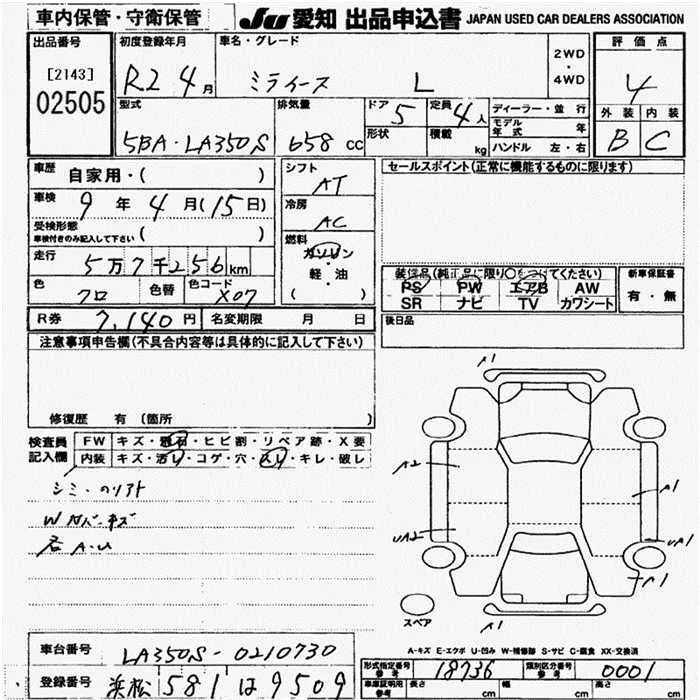 車内保管・守衛保管
JU 愛知 出品申込書 JAPAN USED CAR DEALERS ASSOCIATION
出品番号
[2143]
02505
初度登録年月
R2 4月
車名・グレード
ミライース L
2WD
・
4WD
評価点
4
外装 内装
B C
型式
5BA-LA350S
排気量
658 CC
ドア 5
形状
定員 4人
積載 kg
ディーラー・並行
モデル年式 年
ハンドル 左・右
車歴 自家用・( )
車検 9年4月(15日)
受検形態
車検付きのみ記入して下さい ( )
走行 5万7千256km
色 クロ 色替 色コード X07
R券 7,140円 名変期限 月 日
シフト
AT
冷房
AC
燃料
ガソリン
・
軽・油
( )
セールスポイント(正常に機能するものに限ります)
装備品(純正品に限り○をつけてください)
PS PW エアB AW
SR ナビ TV カワシート
新車保証書
有・無
後日品
注意事項申告欄(不具合内容等は具体的に記入して下さい)
修復歴 有 (箇所 )
検査員記入欄
FW キズ・飛石・ヒビ割・リペア跡・X要
内装 キズ・汚レ・コゲ・穴・スレ・キレ・破レ
シミ・のリフト
W カバーキズ
右 A-U
A1
A2
A1
UA2
UA1
A1
スペア
A1
A-キズ E-エクボ U-凹み W-補修跡 S-サビ C-腐食 XX-交換済
車台番号 LA350S-0210730
登録番号 浜松 581 は 9509
形式指定番号 参考 18736
類別区分番号 参考 0001
車庫証明用 参考 長さ cm 幅 cm 高さ cm